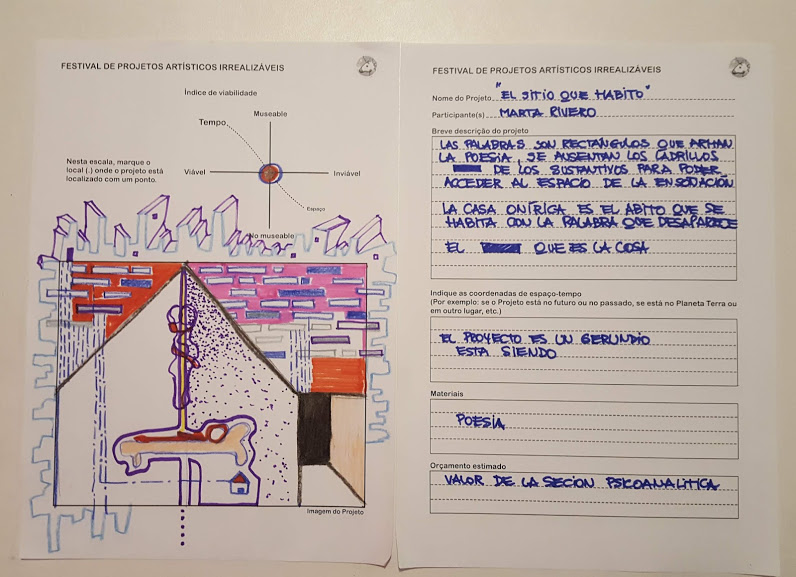 FESTIVAL DE PROJETOS ARTÍSTICOS IRREALIZÁVEIS
Índice de viabilidade
Museable
Tempo
Nesta escala, marque o
local (.) onde o projeto está
localizado com um ponto.
Viável
Inviável
Espaço
No museable
Imagem do Projeto
FESTIVAL DE PROJETOS ARTÍSTICOS IRREALIZÁVEIS
Nome do Projeto "EL SITIO QUE HABITO"
Participante(s) MARTA RIVERO
Breve descrição do projeto
LAS PALABRAS SON RECTANGULOS QUE ARMAN
LA POESIA, SE AUSENTAN LOS LADRILLOS
DE LOS SUSTANTIVOS PARA PODER
ACCEDER AL ESPACIO DE LA ENSOÑACIÓN
LA CASA ONIRIGA ES EL ABITO QUE SE
HABITA CON LA PALABRA QUE DESAPARECE
EL QUE ES LA COSA
Indique as coordenadas de espaço-tempo
(Por exemplo: se o Projeto está no futuro ou no passado, se está no Planeta Terra ou
em outro lugar, etc.)
EL PROYECTO ES UN GERUNDIO
ESTA SIENDO
Materiais
POESIA
Orçamento estimado
VALOR DE LA SECION PSICOANALITICA